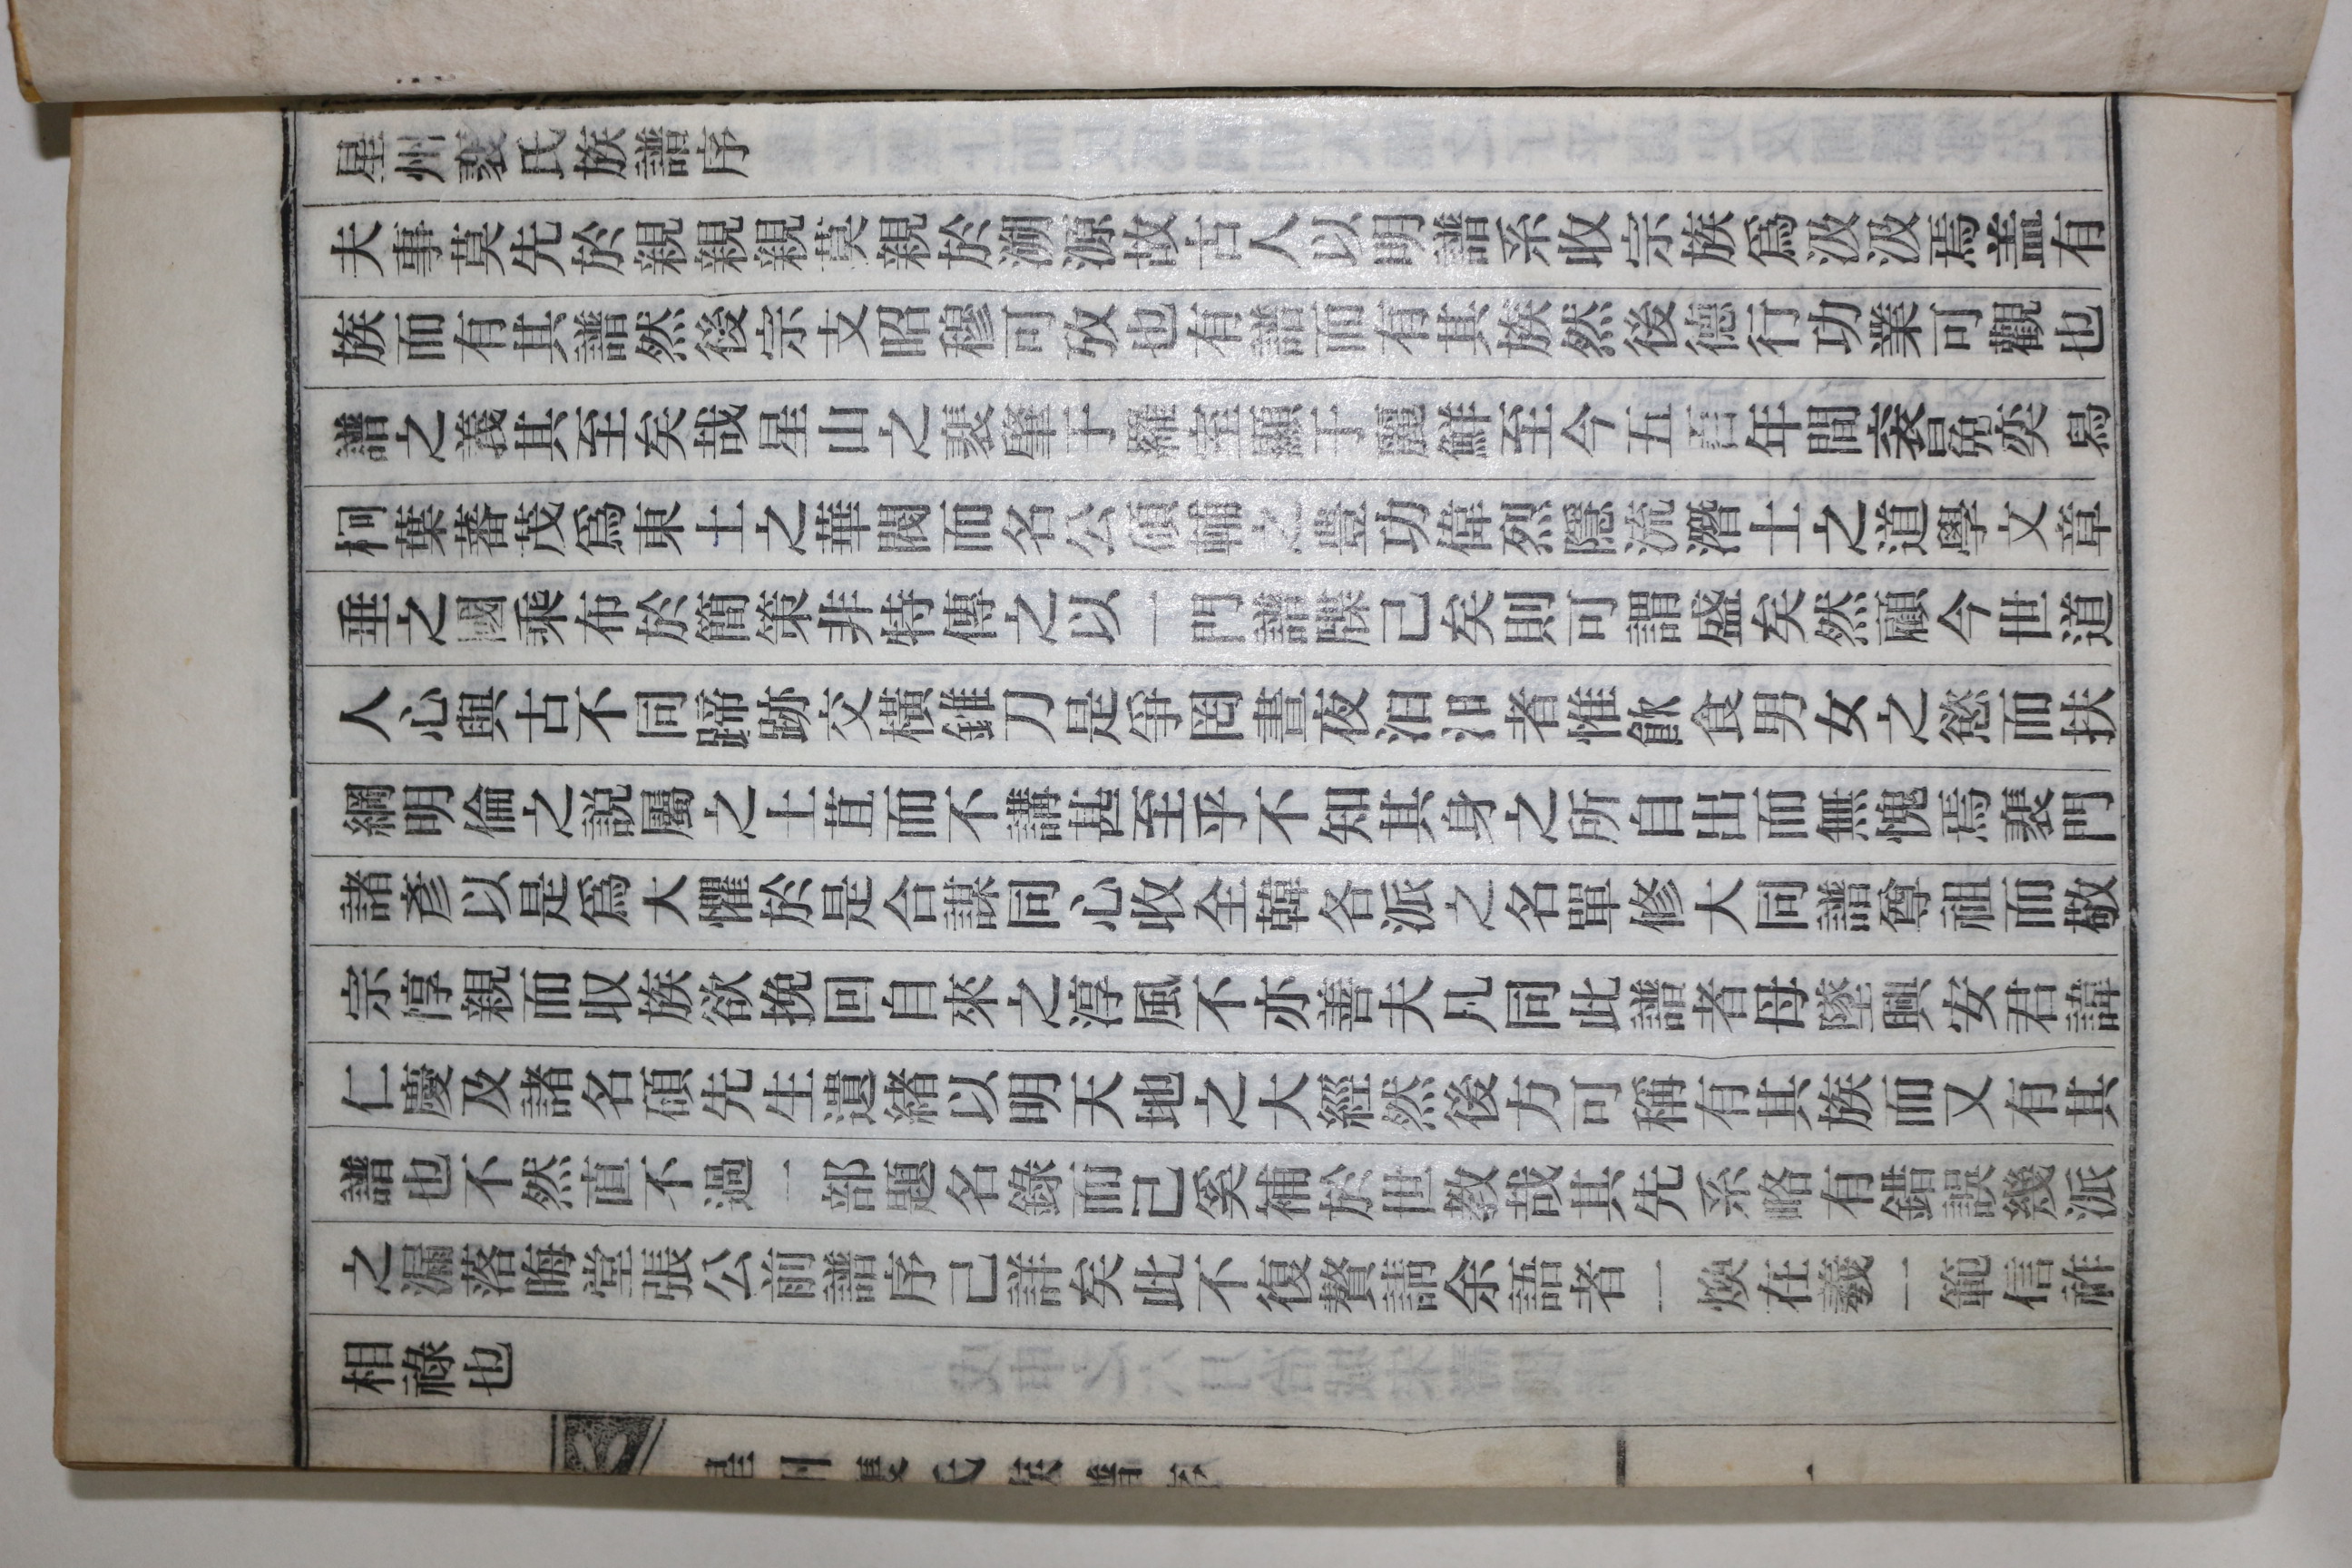 星州裵氏族譜序
夫事莫先於親親親莫親於溯源故古人以明譜系收宗族爲汲汲焉盖有
族而有其譜然後宗支昭穆可攷也有譜而有其族然後德行功業可觀也
譜之義其至矣哉星山之裵肇于羅奎顯于麗鮮至今五百年間衮冕奕舃
柯葉蕃茂爲東土之華閥而名公碩輔之豊功偉烈隱流潛士之道學文章
垂之國乘布於簡策非特傳之以一門譜牒已矣則可謂盛矣然顧今世道
人心與古不同蹄跡交橫錐刀是爭罔晝夜汨汨者惟飮食男女之慾而扶
綱明倫之說屬之土苴而不講甚至乎不知其身之所自出而無愧焉裵門
諸彥以是爲大懼於是合謀同心收全韓各派之名單修大同譜尊祖而敬
宗惇親而收族欲挽回自來之淳風不亦善夫凡同此譜者毋墜興安君諱
仁慶及諸名碩先生遺緖以明天地之大經然後方可稱有其族而又有其
譜也不然直不過一部題名錄而已奚補於世敎哉其先系略有錯誤幾派
之漏落晦堂張公前譜序已詳矣此不復贅請余語者一煥在羲一範信祚
相祿也
星州裵氏族譜序